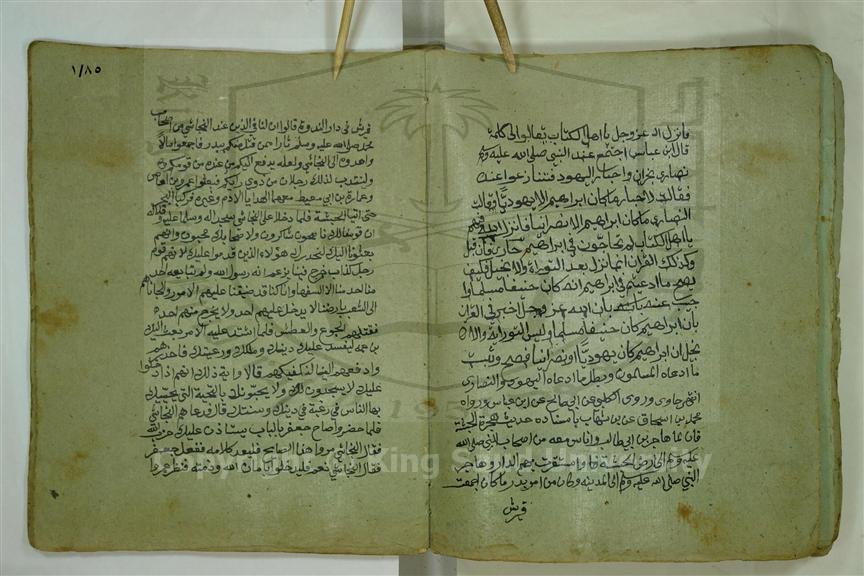 فانزل الله عز وجل يا اهل الكتاب تعالوا الى كلمة
قال ابن عباس اجتمع عند النبي صلى الله عليه وسلم
نصارى نجران واحبار اليهود فتنازعوا عنده
فقالت الاحبار ما كان ابراهيم الا يهوديا وقالت
النصارى ما كان ابراهيم الا نصرانيا فانزل الله فيهم
يا اهل الكتاب لم تحاجون في ابراهيم
وكذلك القران انما نزل بعد التوراة والانجيل فكيف
يصح ما ادعيتم في ابراهيم انه كان حنيفا مسلما
بان الله عز وجل اخبر في القران
بان ابراهيم كان حنيفا مسلما وليس في التوراة والان
جيل ان ابراهيم كان يهوديا او نصرانيا فصح وثبت
ما ادعاه المسلمون وبطل ما ادعاه اليهود والنصارى
وروى الكلبي عن ابي صالح عن ابن عباس ورواه
محمد بن اسحاق عن ابن شهاب باسناده حديث هجرة الحبشة
قال لما هاجر بن ابي طالب واناس معه من اصحاب النبي صلى الله
عليه وسلم الى ارض الحبشة واستقرت بهم الدار وهاجر
النبي صلى الله عليه وسلم الى المدينة وكان من امر بدر ما كان اجتمعت
قريش
١/٨٥
قريش في دار الندوة قالوا ان لنا في الذين عند النجاشي من اصحاب
محمد صلى الله عليه وسلم ثارا ممن قتل منكم ببدر فاجمعوا مالا
واهدوه الى النجاشي ولعله يدفع اليكم من عنده من قومكم
ولينتدب لذلك رجلان من ذوي رايكم فبعثوا عمرو بن العاص
وعمارة بن ابي معيط معهما الهدايا الادم وغيره فركبا البحر
حتى اتيا الحبشة فلما دخلا على النجاشي سجدا له وسلما عليه وقالا له
ان قومنا لك ناصحون شاكرون ولاصحابك محبون وانهم
بعثونا اليك لنحذرك هؤلاء الذين قدموا عليك لانهم قوم
رجل كذاب خرج فينا يزعم انه رسول الله ولم يتابعه احد
منا الا السفها وانا كنا قد ضيقنا عليهم الامر والجاناهم
الى شعب بارضنا لا يدخل عليهم احد ولا يخرج منهم احد
فقتلهم الجوع والعطش فلما اشتد عليه الامر بعث اليك
بن عمه ليفسد عليك دينك وملكك ورعيتك فاحذرهم
وادفعهم الينا لنكفيكهم قالا واية ذلك انهم اذا دخلوا
عليك لا يسجدون لك ولا يحيونك بالتحية التي يحييك
بها الناس رغبة في دينك وسنتك قال فدعاهم النجاشي
فلما حضروا صاح جعفر بالباب يستاذن عليك حزب الله
فقال النجاشي مروا هذا الصايح فليعد كلامه ففعل جعفر
فقال النجاشي نعم فليدخلوا بامان الله وذمته فنظر
Copyright © King Saud University
195